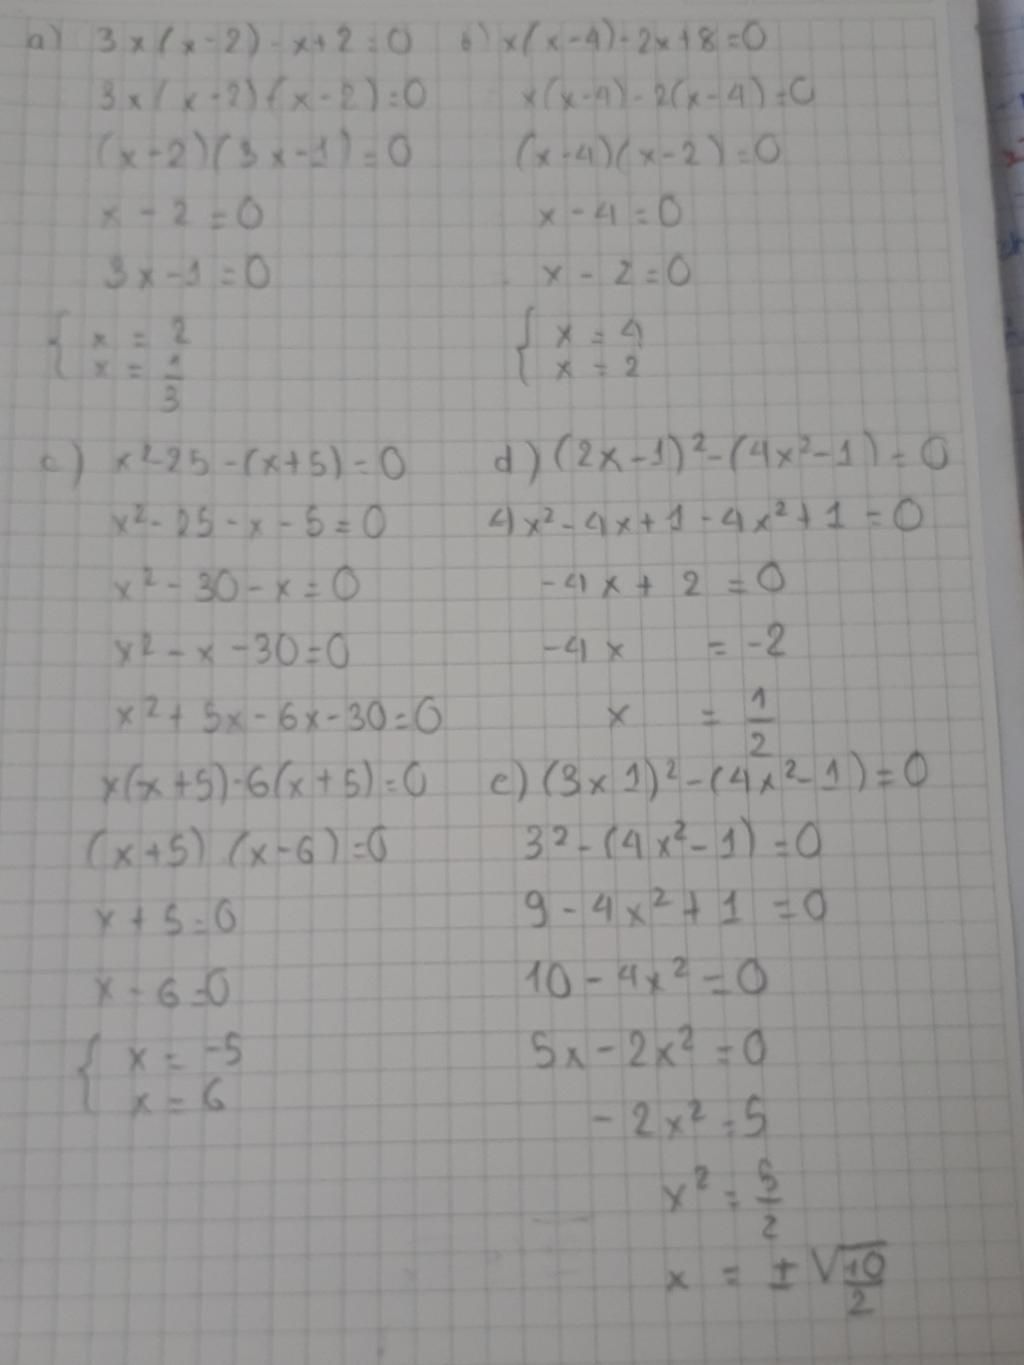 a) 3x(x-2)-x+2=0
3x(x-2)-(x-2)=0
(x-2)(3x-1)=0
x-2=0
3x-1=0
{ x = 2
x = 1/3
b) x(x-4)-2x+8=0
x(x-4)-2(x-4)=0
(x-4)(x-2)=0
x-4=0
x-2=0
{ x = 4
x = 2
c) x²-25-(x+5)=0
x²-25-x-5=0
x²-30-x=0
x²-x-30=0
x²+5x-6x-30=0
x(x+5)-6(x+5)=0
(x+5)(x-6)=0
x+5=0
x-6=0
{ x = -5
x = 6
d) (2x-1)²-(4x²-1)=0
4x²-4x+1-4x²+1=0
-4x+2=0
-4x = -2
x = 1/2
e) (3x1)²-(4x²-1)=0
3²-(4x²-1)=0
9-4x²+1=0
10-4x²=0
5x-2x²=0
-2x²=5
x² = 5/2
x = ±√10/2